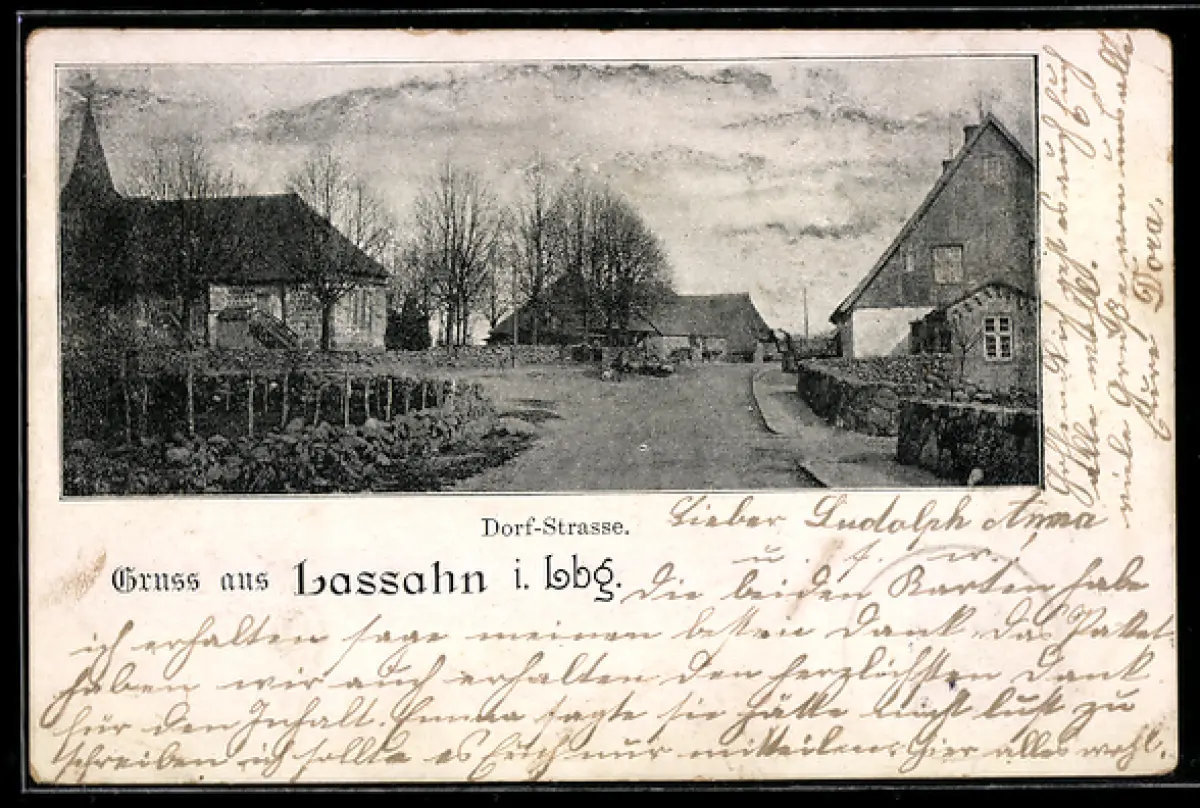 Dorf-Strasse.
Gruss aus Lassahn i. Lbg.
Lieber Ludolph Anna
u. s. w.!
Die beiden Karten habe
ich erhalten sage meinen besten Dank. Das Packet
haben wir auch erhalten den herzlichsten Dank
für den Inhalt. Emma sagte sie hätte nicht lust zu
schreiben ich sollte es Euch nur mitteilen. Hier alles wohl.
Hoffentlich ist es auch bei Euch
alle wohl.
viele Grüße von uns alle
Eure Dora.